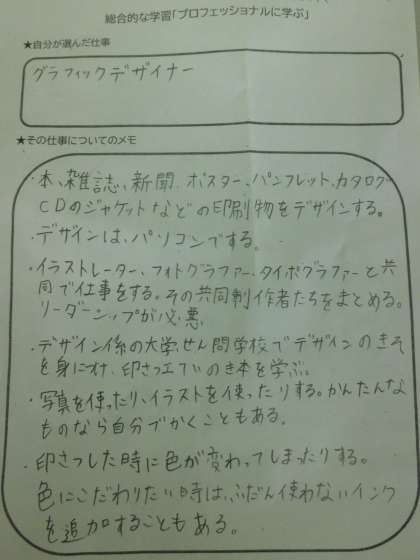 総合的な学習「プロフェッショナルに学ぶ」
★自分が選んだ仕事
グラフィックデザイナー
★その仕事についてのメモ
・本、雑誌、新聞、ポスター、パンフレット、カタログ
CDのジャケットなどの印刷物をデザインする。
・デザインは、パソコンでする。
・イラストレーター、フォトグラファー、タイポグラファーと共
同で仕事をする。その共同制作者たちをまとめる。
リーダーシップが必悪
・デザイン係の大学、せん問学校でデザインのきそ
を身につけ、印さつ工ていのき本を学ぶ。
・写真を使ったり、イラストを使ったりする。かんたんな
ものなら自分でかくこともある。
・印さつした時に色が変わってしまったりする。
色にこだわりたい時は、ふだん使わないインク
を追加することもある。